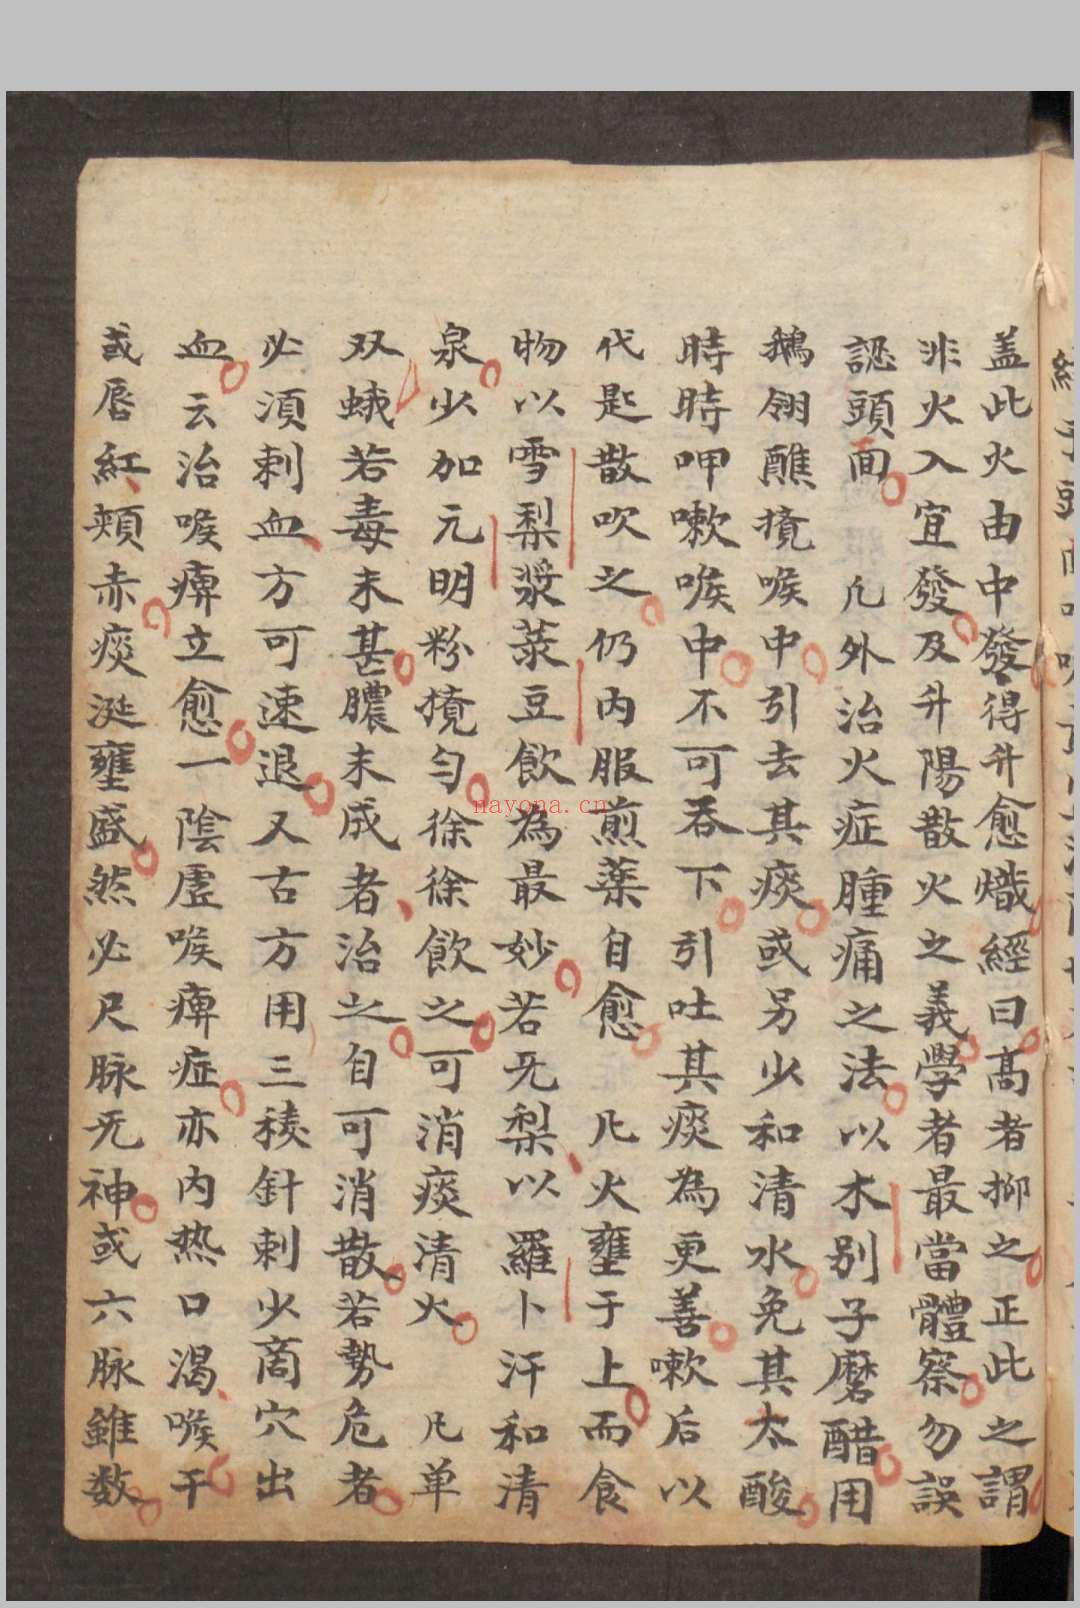 盖此火由中發得升愈熾經曰高者抑之正此之謂
非火入宜發及升陽散火之義學者最當體察勿誤
認頭面　凡外治火症腫痛之法以木別子磨醋用
鵝翎醮攪喉中引去其痰或另少和清水免其太酸
時時呷嗽喉中不可吞下引吐其痰為更善嗽后以
代匙散吹之仍内服煎藥自愈　凡火壅于上而食
物以雪梨漿菉豆飲為最妙若旡梨以羅卜汗和清
泉少加元明粉攪匀徐徐飲之可消痰清火　凡单
双蛾若毒未甚膿未成者治之自可消散若勢危者
必湏刺血方可速退又古方用三稜針刺少商穴出
血云治喉痺立愈一陰虗喉痺症亦内热口渴喉干
或唇紅頬赤痰涎壅盛然必尺脉旡神或六脉雖数
nayona.cn